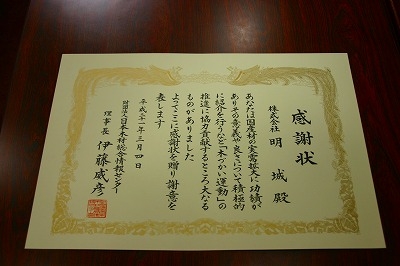 感謝状
株式会社 明城殿
あなたは国産材の需要拡大に功績が
ありその意義や良さについて積極的
に紹介を行うなど「木づかい運動」の
推進に協力貢献するところ大なる
ものがありました
よってここに感謝状を贈り謝意を
表します
平成二十一年三月四日
財団法人日本木材総合情報センター
理事長 伊藤威彦